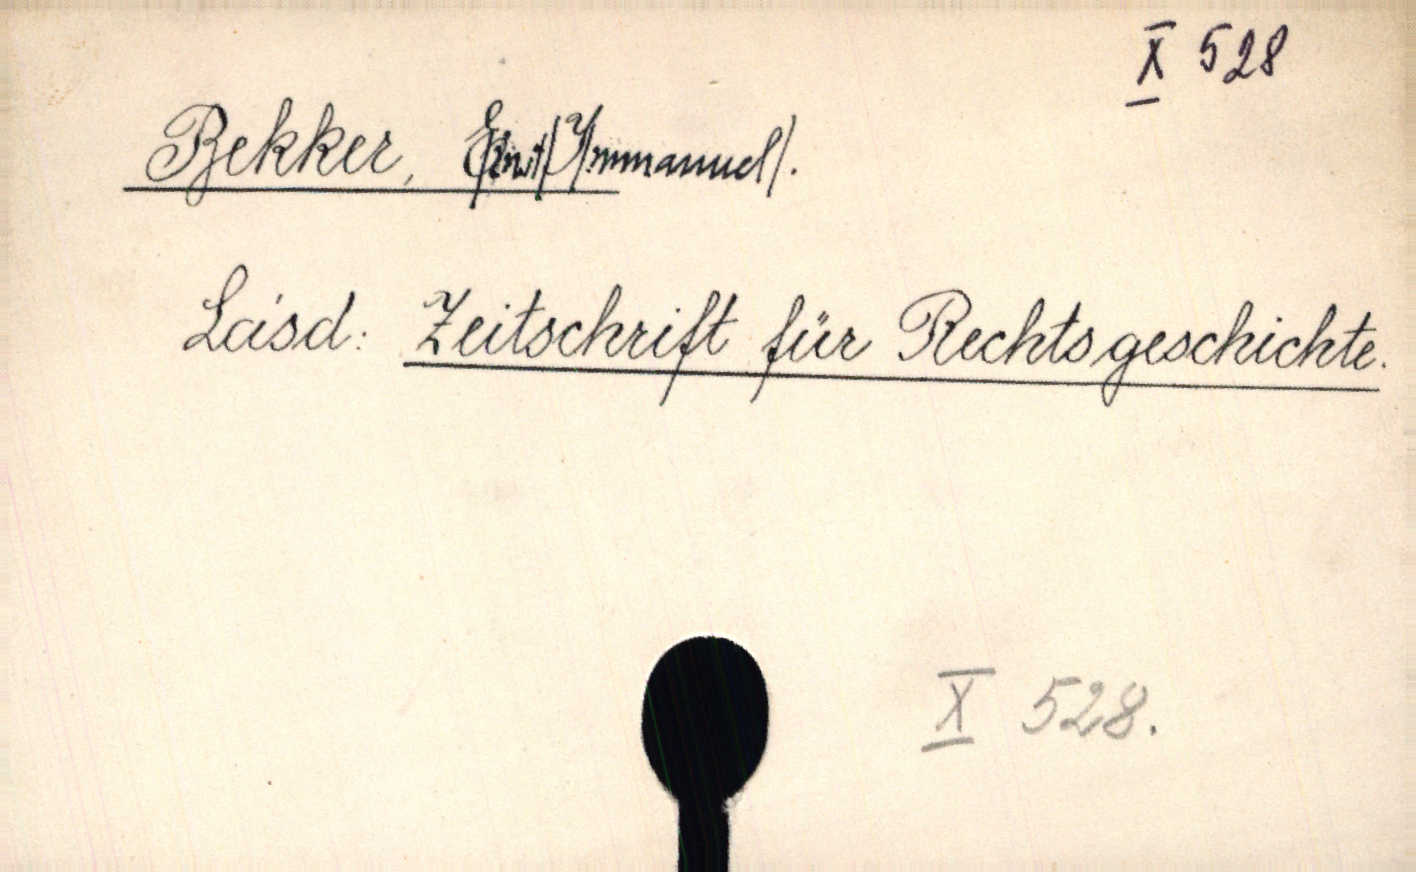 X 528
Bekker, Ernst (Immanuel).
Lásd: Zeitschrift für Rechtsgeschichte.
X 528.